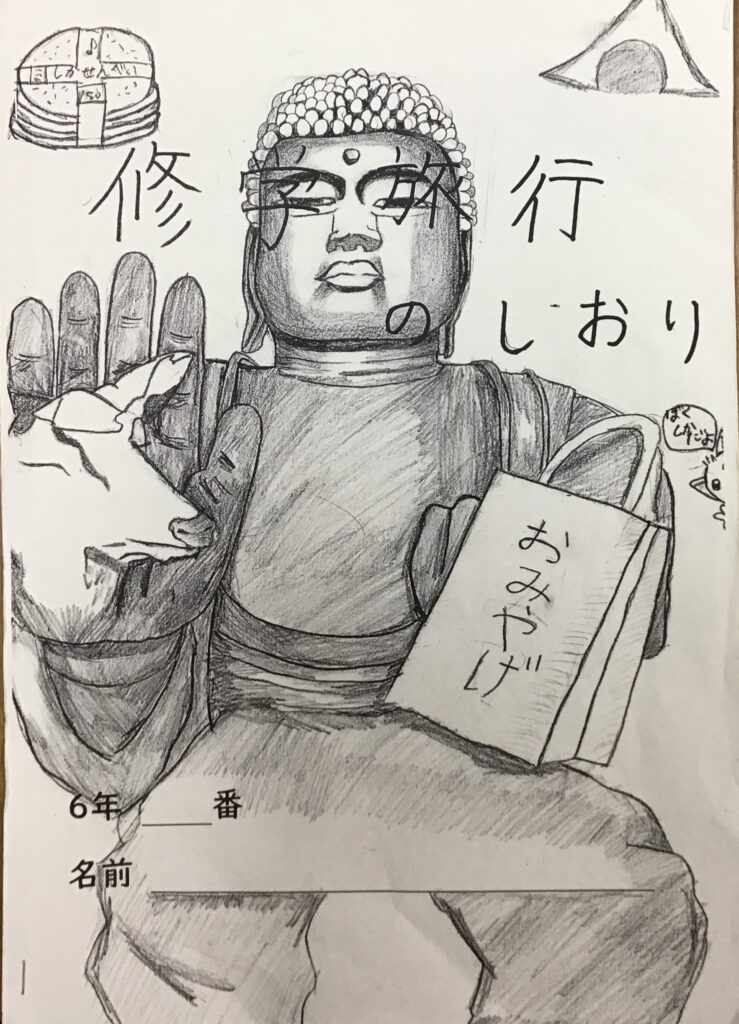 しかせんべい
150
修学旅行
のしおり
ぼく
しかだよ
おみやげ
6年 ____番
名前 ____